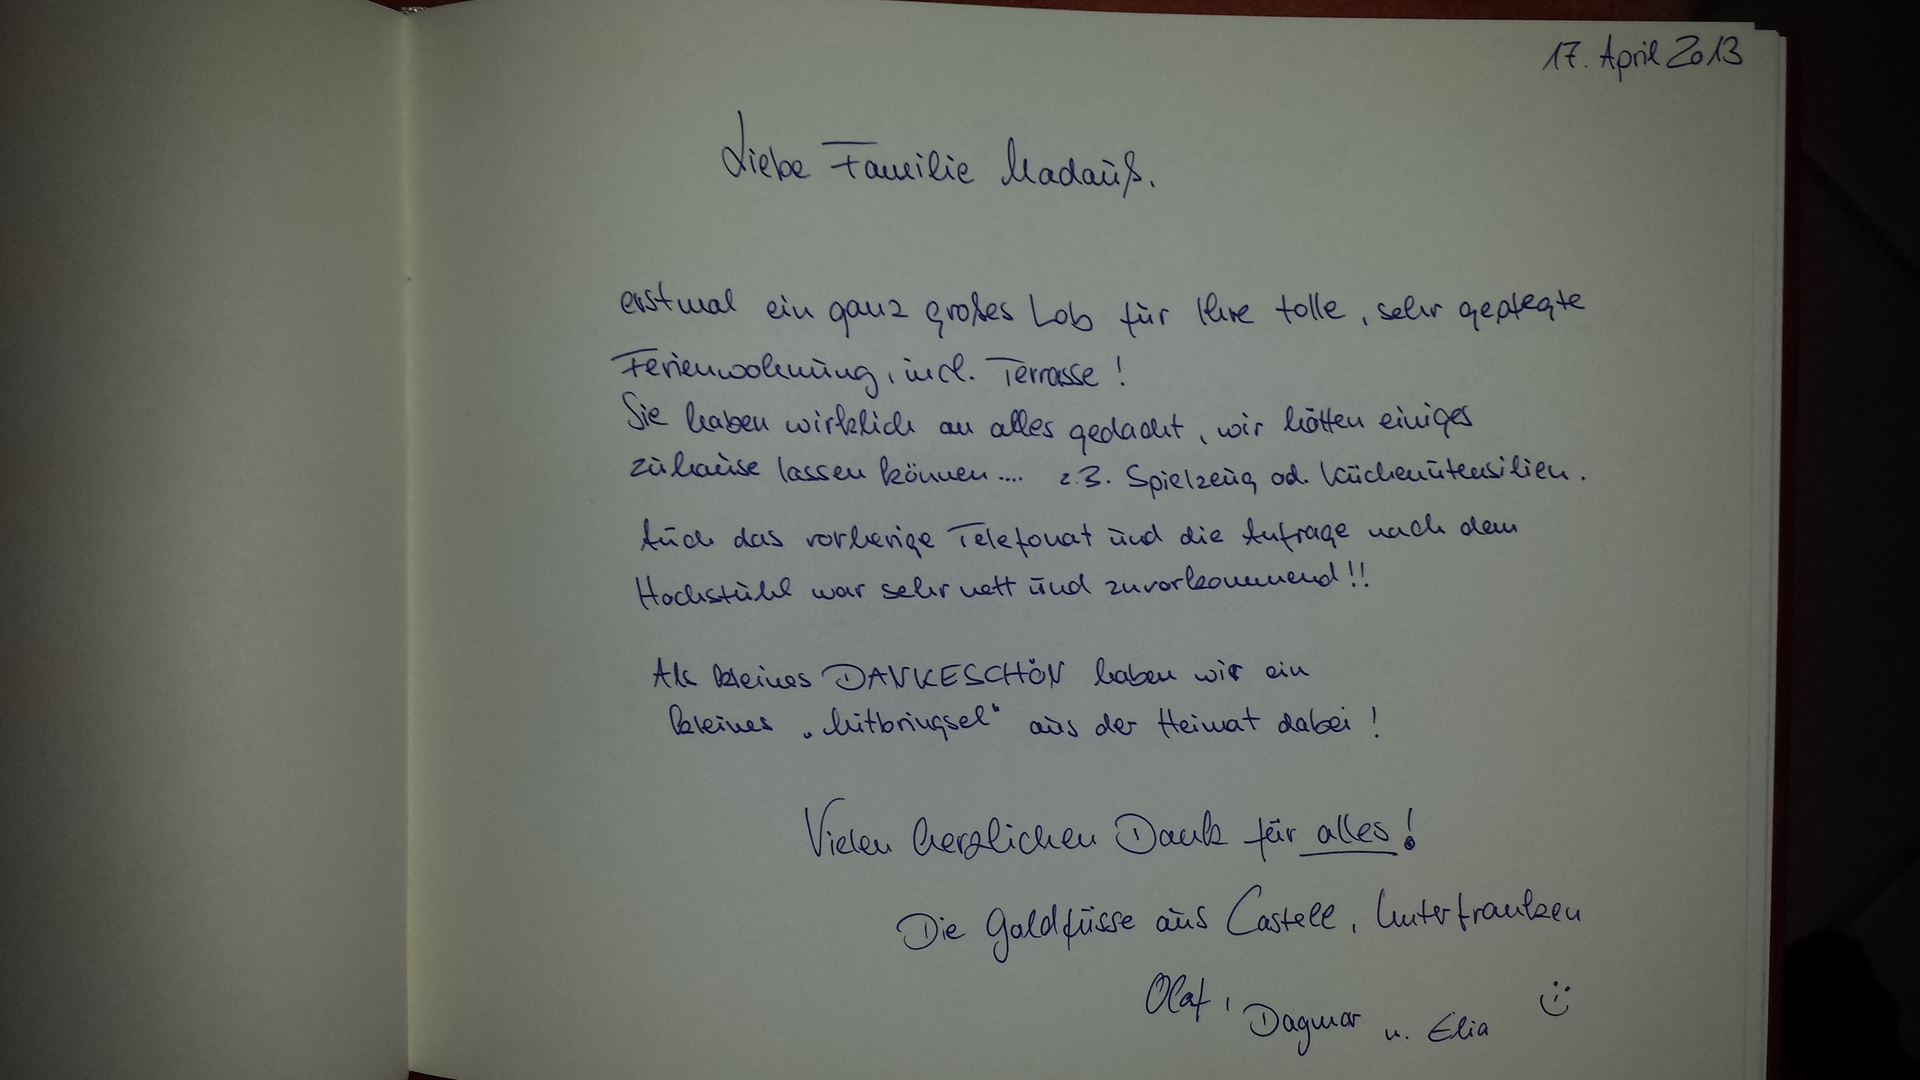 17. April 2013
Liebe Familie Madauß.
erstmal ein ganz großes Lob für Ihre tolle, sehr gepflegte
Ferienwohnung, incl. Terrasse!
Sie haben wirklich an alles gedacht, wir hätten einiges
zuhause lassen können.... z.B. Spielzeug od. Küchenutensilien.
Auch das vorherige Telefonat und die Anfrage nach dem
Hochstuhl war sehr nett und zuvorkommend!!
Als kleines DANKESCHÖN haben wir ein
kleines „Mitbringsel“ aus der Heimat dabei!
Vielen herzlichen Dank für alles!
Die Goldfüsse aus Castell, Unterfranken
Olaf, Dagmar u. Elia